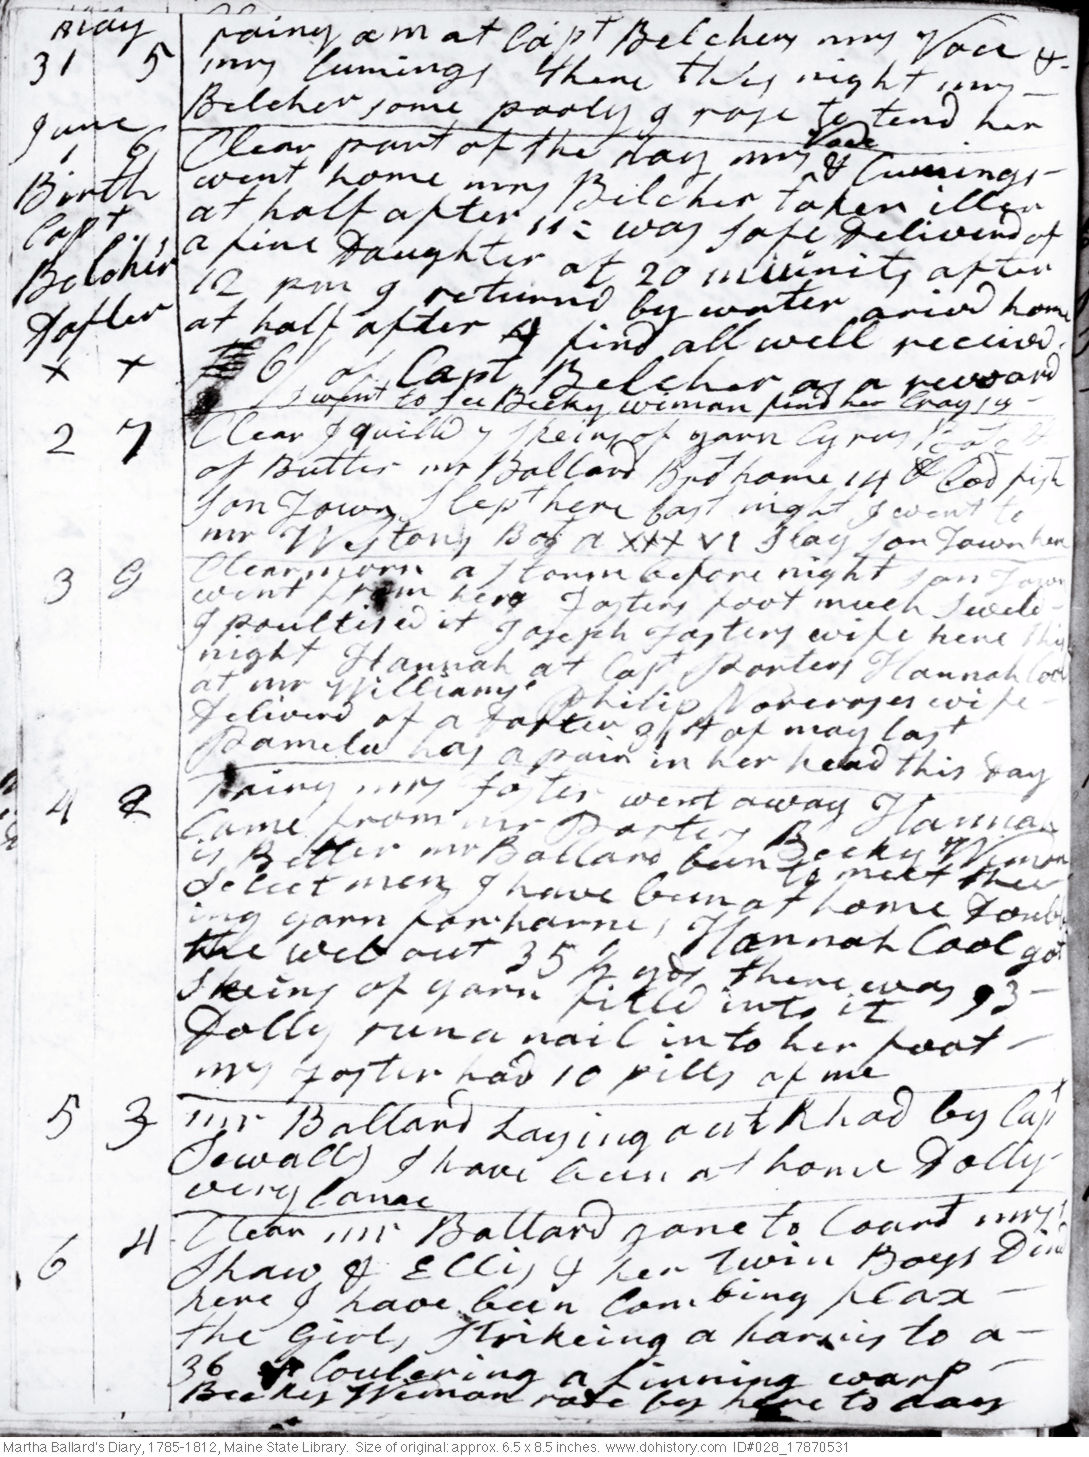 May
31 5 rainy am at Capt Belchers mrs Voce &
mrs Cumings there this night mrs
Belcher some poorly I rose to tend her
June
1 6 Clear part of the day mrs Voce & Cumings
Birth went home mrs Belcher taken iller
Capt at half after 11 = was safe Deliverd of
Belchers a fine Daughter at 20 miunits after
Dafter 12 pm I returnd by water arivd home
at half after 4 find all well receivd
x x 6/ of Capt Belcher as a reward
I went to see Beeky wiman find her Craysy
2 7 Clear I quilld 7 skeins of yarn Cyrus
of Butter mr Ballard Bro't home 14 lb Cod fish
son Town slept here last night I went to
mr Westons Bot a XXX VI Slay son Town here
3 G Clear morn a storm before night son Town
went from here Fosters foot much sweld
I poultised it Joseph Fosters wife here this
night Hannah at Capt Porters Hannah Cool
at mr Williams' Philip Norcroses wife
Deliverd of a Dafter 31st of may last
Pamela has a pain in her head this Day
4 2 rainy mrs Foster went away Hannah
Came from mr Porters Beeky Wiman
is Better mr Ballard been to meet the
Select men I have been at home Doubl
ing yarn for harnes Hannah Cool got
the web out 35 ½ yds there was 93
skeins of yarn filld into it
Dolly run a nail into her foot
mrs Foster had 10 pills of me
5 3 mr Ballard Laying out Rhod by Capt
Sewalls I have been at home Dolly
very Lame
6 4 Clear mr Ballard gone to Court mrs
Shaw & Ellis & her Twin Boys Dind
here I have been Combing flax
the Girls strikeing a harnis to a
36 Coulering a linning warp
Beekey Wiman rode by here to day
Martha Ballard's Diary, 1785-1812, Maine State Library. Size of original: approx. 6.5 x 8.5 inches. www.dohistory.com ID#028_17870531